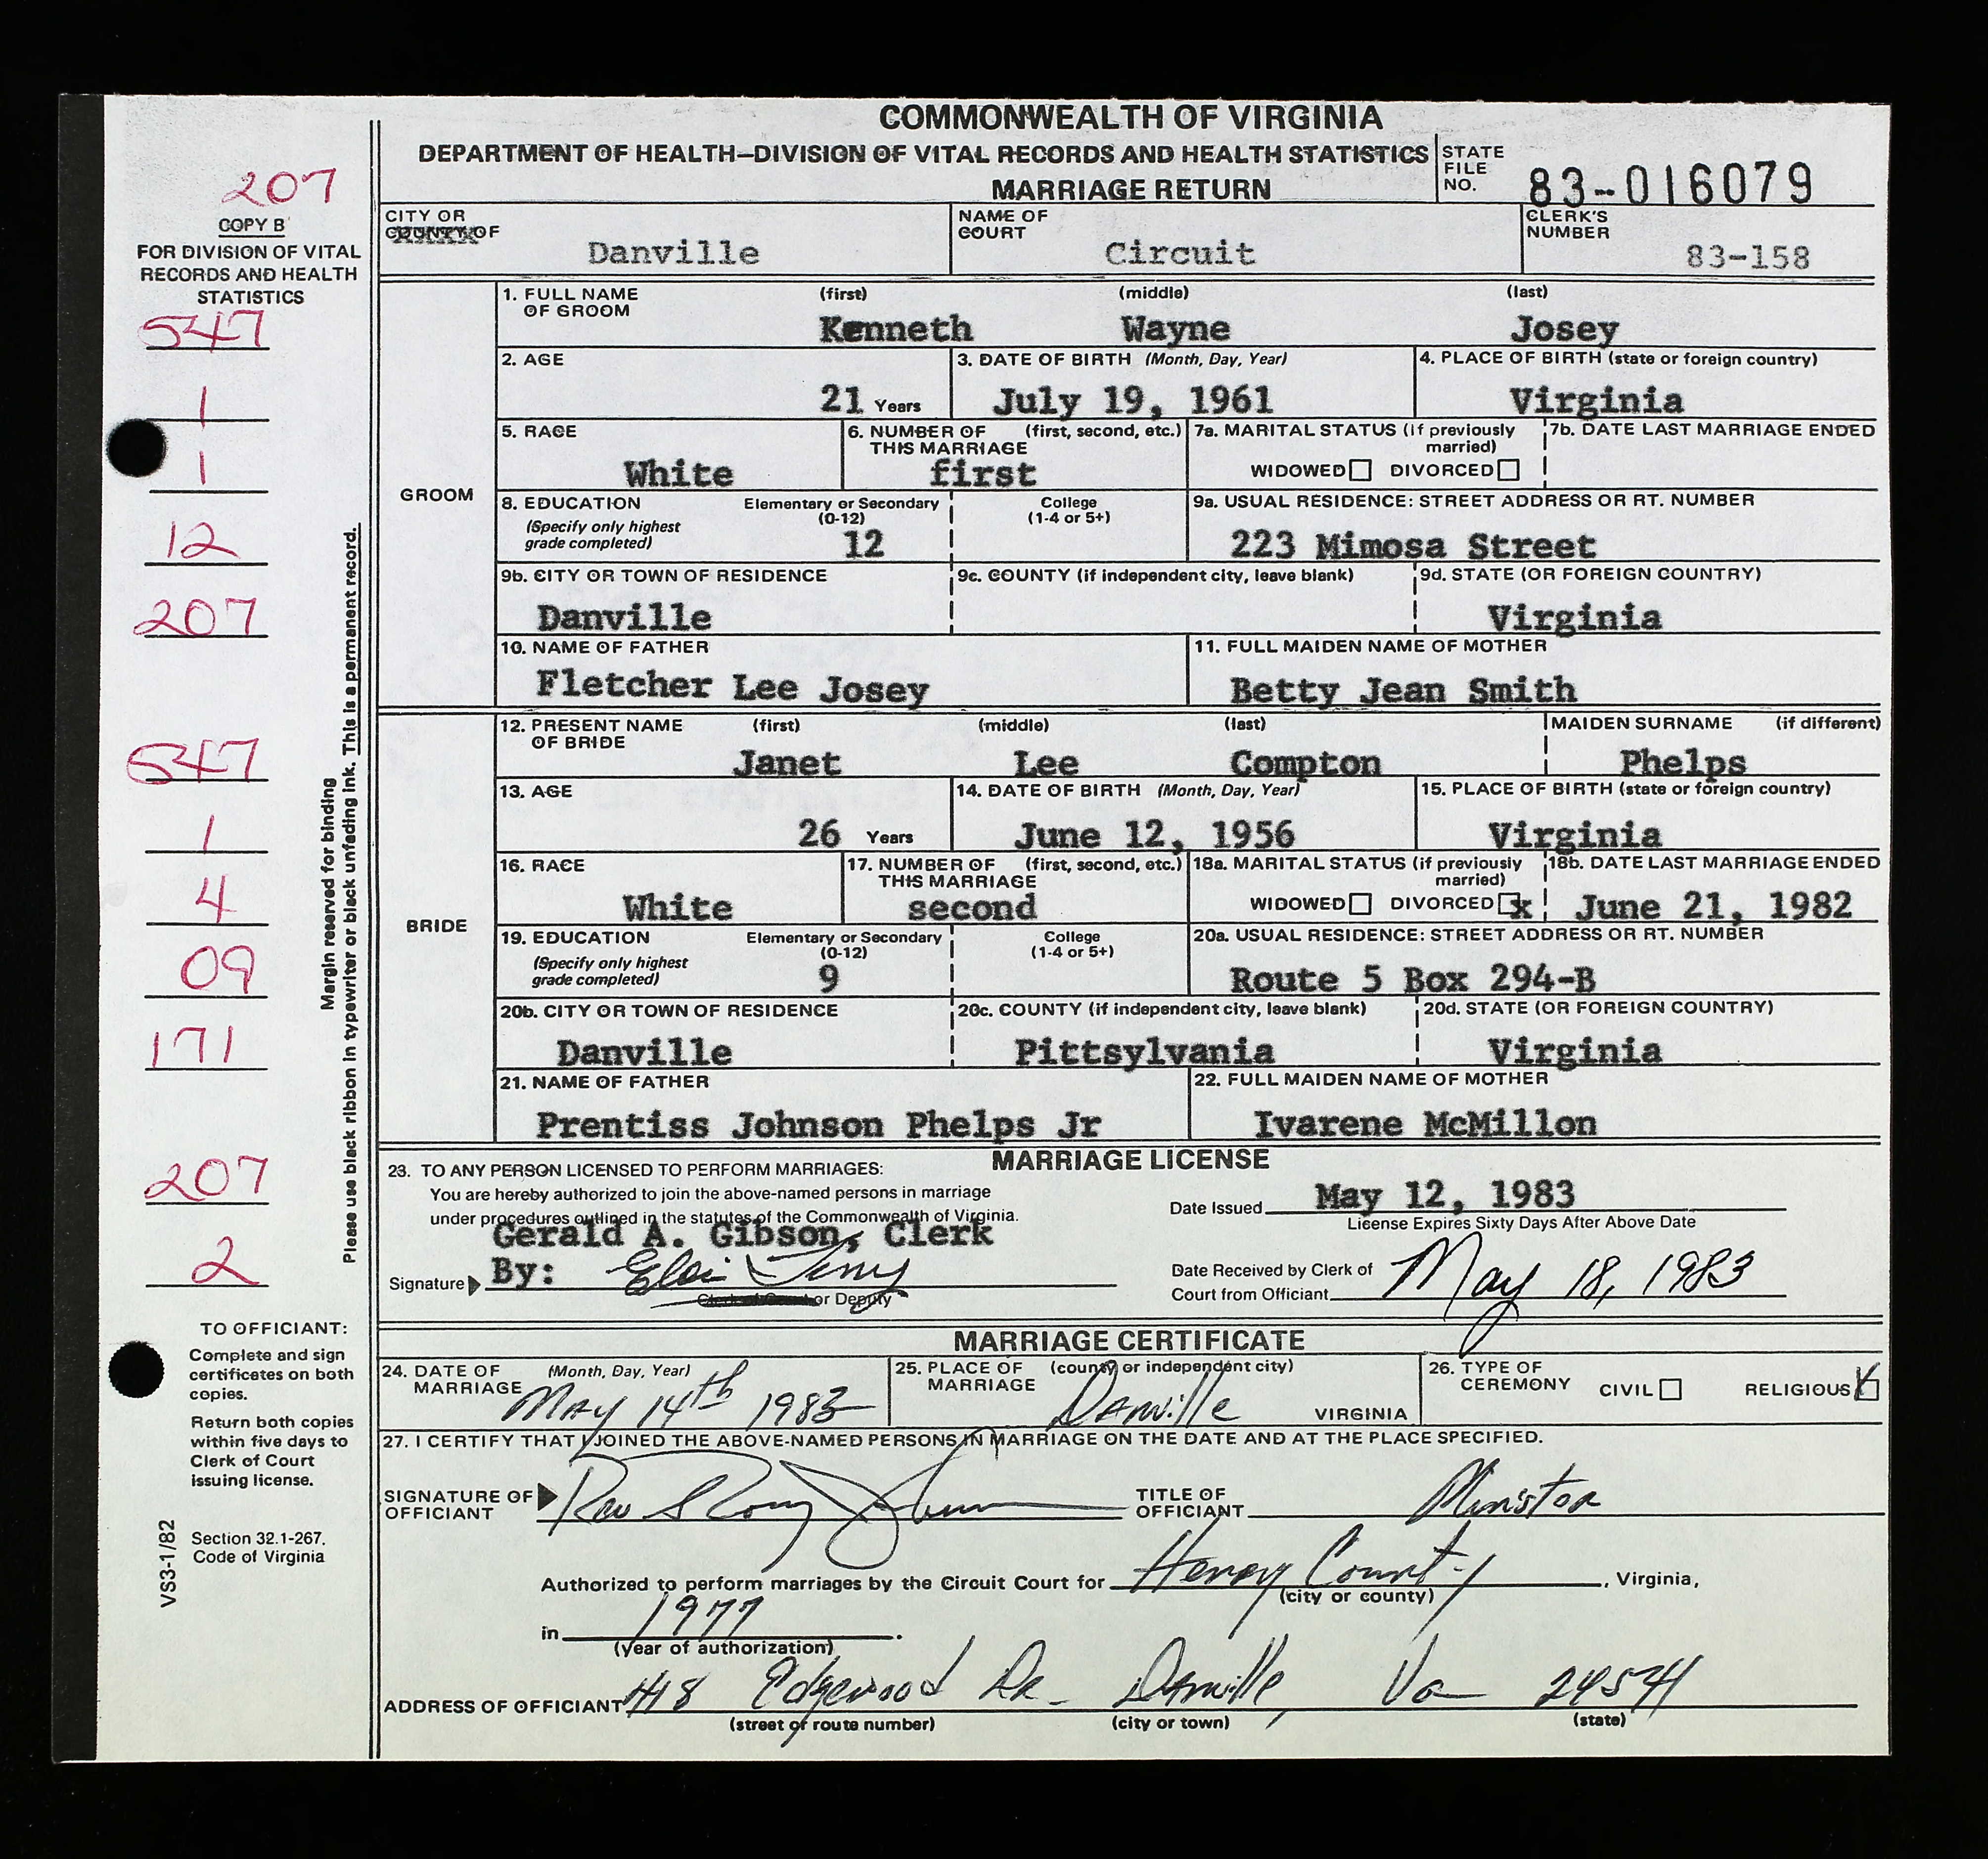 COMMONWEALTH OF VIRGINIA
DEPARTMENT OF HEALTH—DIVISION OF VITAL RECORDS AND HEALTH STATISTICS
MARRIAGE RETURN
STATE FILE NO. 83-016079
207
COPY B
FOR DIVISION OF VITAL
RECORDS AND HEALTH
STATISTICS
547
1
1
12
207
547
1
4
09
171
207
2
Margin reserved for binding
Please use black ribbon in typewriter or black unfading ink. This is a permanent record.
TO OFFICIANT:
Complete and sign
certificates on both
copies.
Return both copies
within five days to
Clerk of Court
issuing license.
Section 32.1-267,
Code of Virginia
VS3-1/82
CITY OR COUNTY OF Danville
NAME OF COURT Circuit
CLERK'S NUMBER 83-158
GROOM
1. FULL NAME OF GROOM (first) Kenneth (middle) Wayne (last) Josey
2. AGE 21 Years
3. DATE OF BIRTH (Month, Day, Year) July 19, 1961
4. PLACE OF BIRTH (state or foreign country) Virginia
5. RACE White
6. NUMBER OF THIS MARRIAGE (first, second, etc.) first
7a. MARITAL STATUS (if previously married) WIDOWED DIVORCED
7b. DATE LAST MARRIAGE ENDED
8. EDUCATION (Specify only highest grade completed) Elementary or Secondary (0-12) 12 College (1-4 or 5+)
9a. USUAL RESIDENCE: STREET ADDRESS OR RT. NUMBER 223 Mimosa Street
9b. CITY OR TOWN OF RESIDENCE Danville
9c. COUNTY (if independent city, leave blank)
9d. STATE (OR FOREIGN COUNTRY) Virginia
10. NAME OF FATHER Fletcher Lee Josey
11. FULL MAIDEN NAME OF MOTHER Betty Jean Smith
BRIDE
12. PRESENT NAME OF BRIDE (first) Janet (middle) Lee (last) Compton MAIDEN SURNAME (if different) Phelps
13. AGE 26 Years
14. DATE OF BIRTH (Month, Day, Year) June 12, 1956
15. PLACE OF BIRTH (state or foreign country) Virginia
16. RACE White
17. NUMBER OF THIS MARRIAGE (first, second, etc.) second
18a. MARITAL STATUS (if previously married) WIDOWED DIVORCED x
18b. DATE LAST MARRIAGE ENDED June 21, 1982
19. EDUCATION (Specify only highest grade completed) Elementary or Secondary (0-12) 9 College (1-4 or 5+)
20a. USUAL RESIDENCE: STREET ADDRESS OR RT. NUMBER Route 5 Box 294-B
20b. CITY OR TOWN OF RESIDENCE Danville
20c. COUNTY (if independent city, leave blank) Pittsylvania
20d. STATE (OR FOREIGN COUNTRY) Virginia
21. NAME OF FATHER Prentiss Johnson Phelps Jr
22. FULL MAIDEN NAME OF MOTHER Ivarene McMillon
MARRIAGE LICENSE
23. TO ANY PERSON LICENSED TO PERFORM MARRIAGES:
You are hereby authorized to join the above-named persons in marriage
under procedures outlined in the statutes of the Commonwealth of Virginia.
Gerald A. Gibson, Clerk
Signature By:
Clerk of Court or Deputy
Date Issued May 12, 1983
License Expires Sixty Days After Above Date
Date Received by Clerk of Court from Officiant May 18, 1983
MARRIAGE CERTIFICATE
24. DATE OF MARRIAGE (Month, Day, Year) May 14th 1983
25. PLACE OF MARRIAGE (county or independent city) Danville VIRGINIA
26. TYPE OF CEREMONY CIVIL RELIGIOUS X
27. I CERTIFY THAT I JOINED THE ABOVE-NAMED PERSONS IN MARRIAGE ON THE DATE AND AT THE PLACE SPECIFIED.
SIGNATURE OF OFFICIANT Rev
TITLE OF OFFICIANT Minister
Authorized to perform marriages by the Circuit Court for Henry County, Virginia,
(city or county)
in 1977.
(year of authorization)
ADDRESS OF OFFICIANT 418 Edgewood Dr. Danville, Va 24541
(street or route number) (city or town) (state)